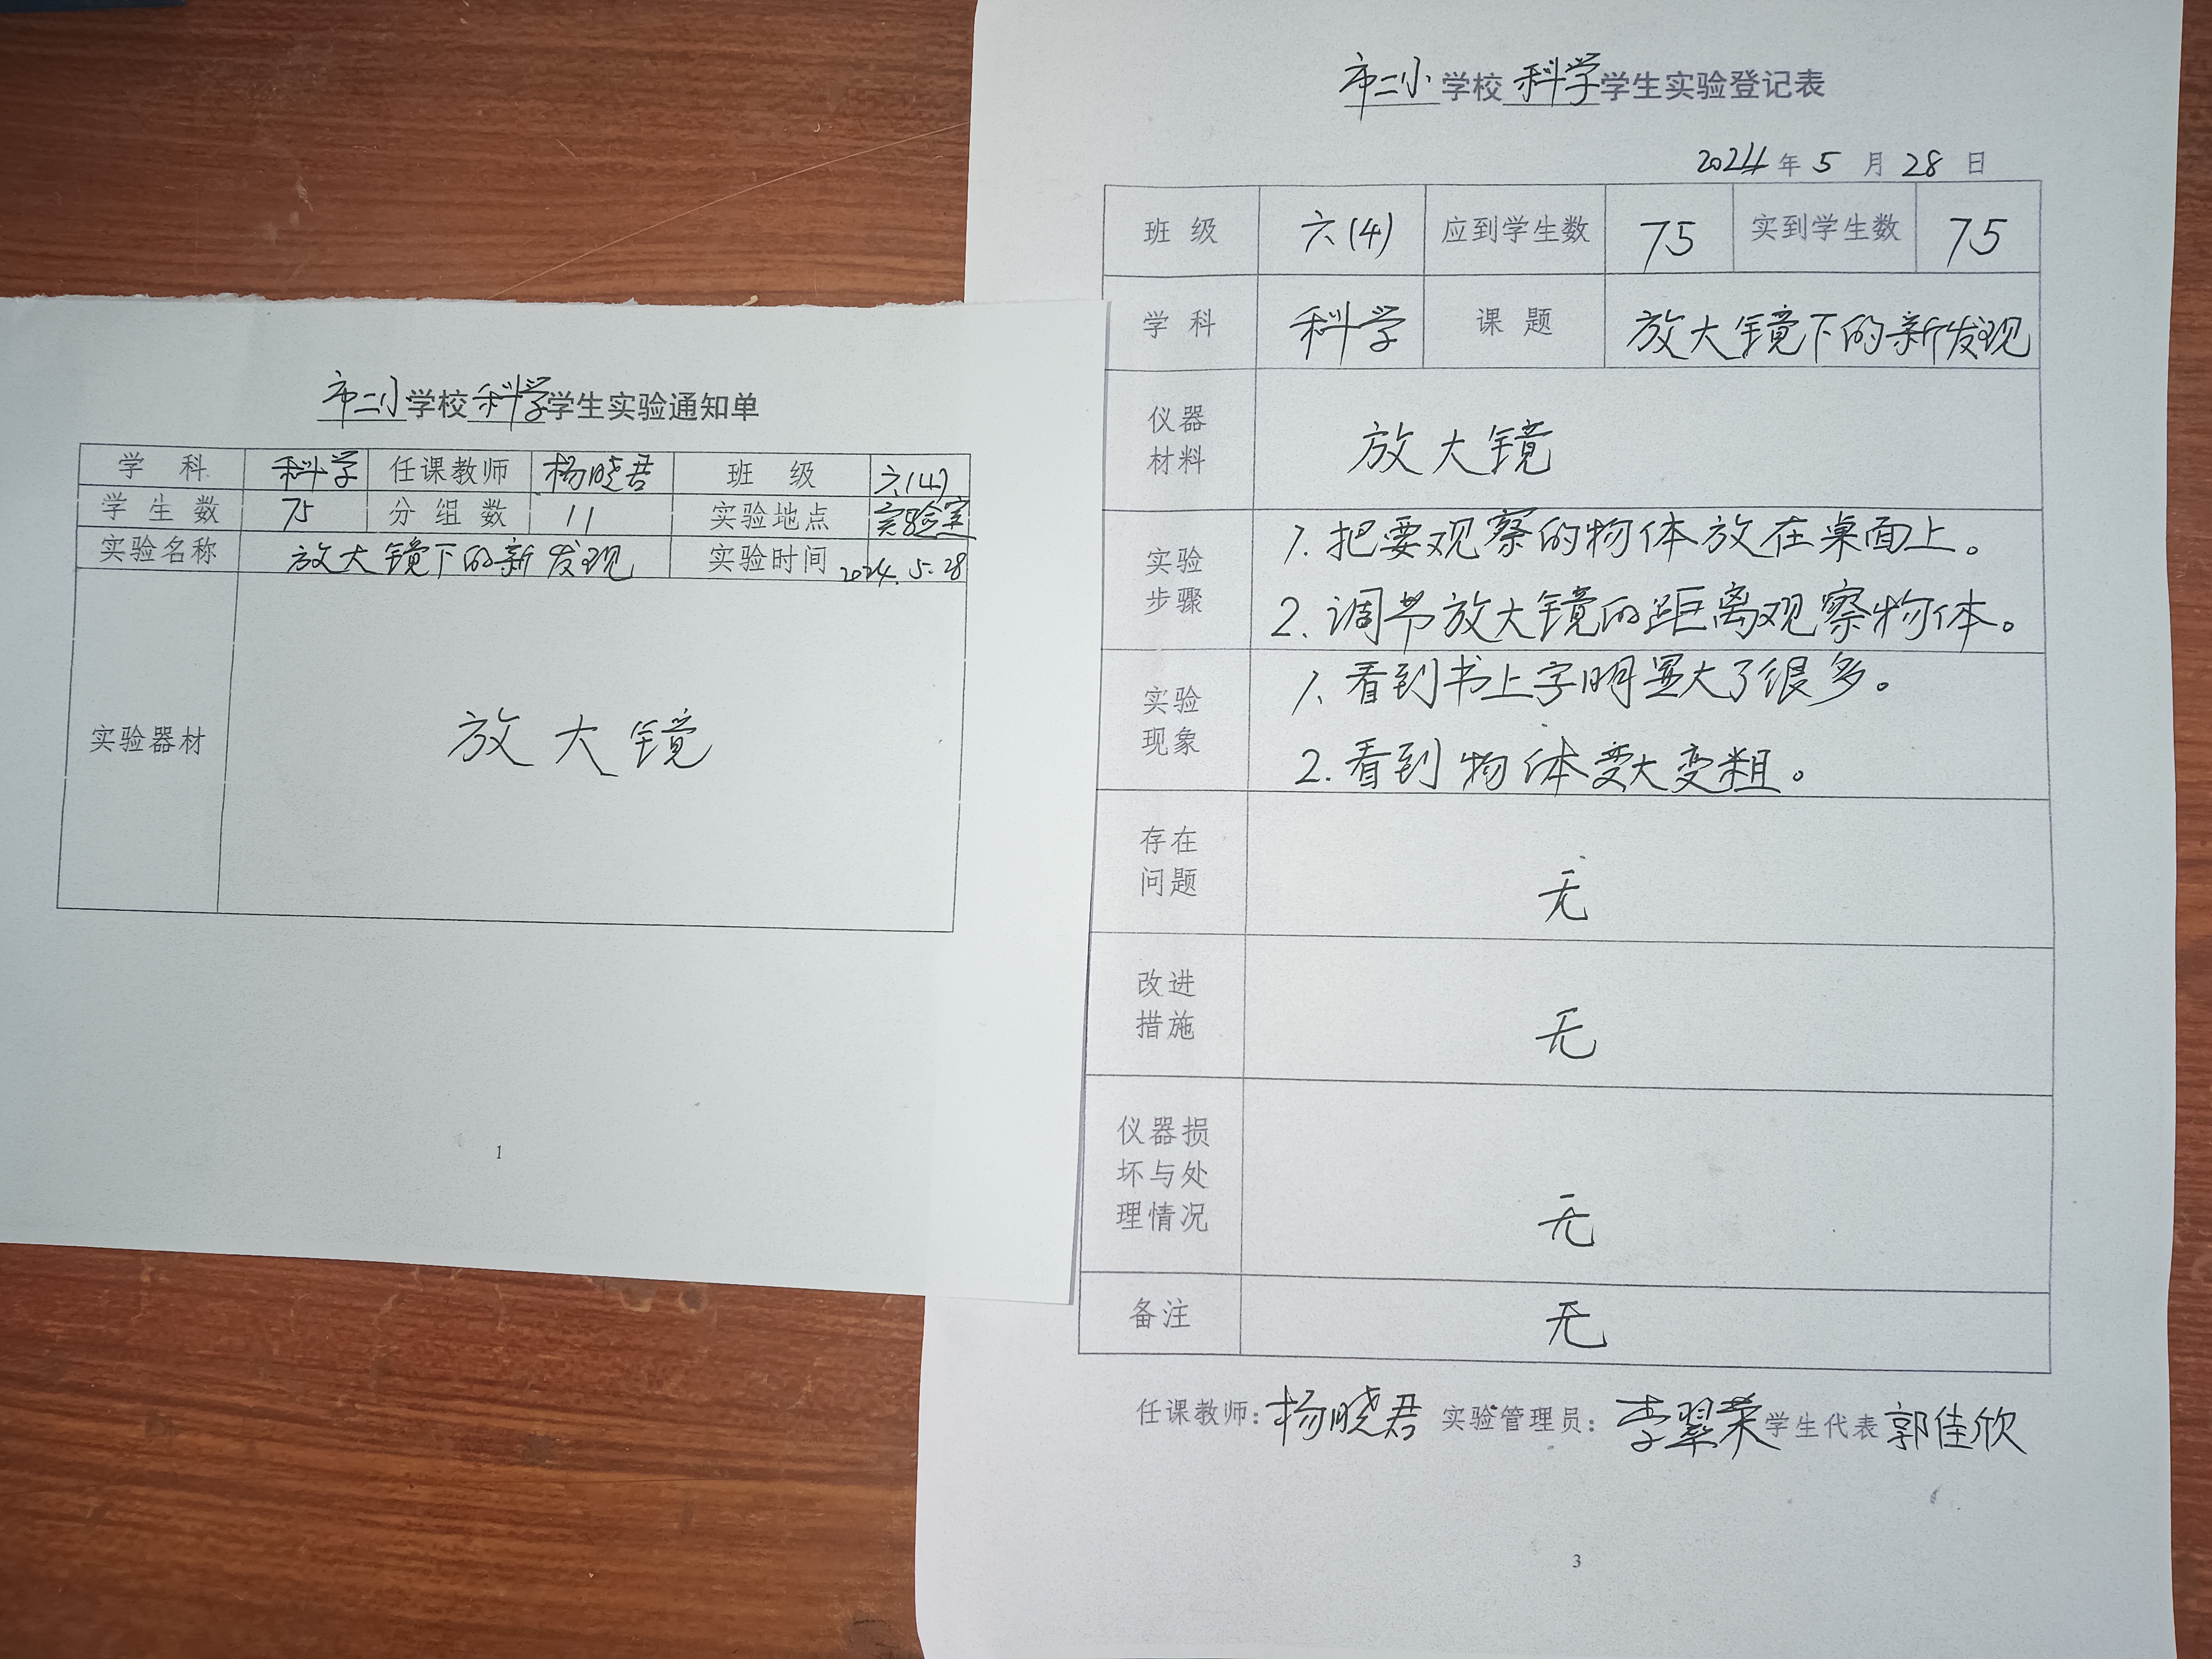 市二小学校科学学生实验通知单
学 科 科学 任课教师 杨晓君 班 级 六(4)
学生数 75 分组数 11 实验地点 实验室
实验名称 放大镜下的新发现 实验时间 2024.5.28
实验器材 放大镜
1
市二小学校科学学生实验登记表
2024年5月28日
班 级 六(4) 应到学生数 75 实到学生数 75
学 科 科学 课 题 放大镜下的新发现
仪器
材料
放大镜
实验
步骤
1.把要观察的物体放在桌面上。
2.调节放大镜的距离观察物体。
实验
现象
1.看到书上字明显大了很多。
2.看到物体变大变粗。
存在
问题
无
改进
措施
无
仪器损
坏与处
理情况
无
备注 无
任课教师:杨晓君 实验管理员:李翠荣 学生代表 郭佳欣
3